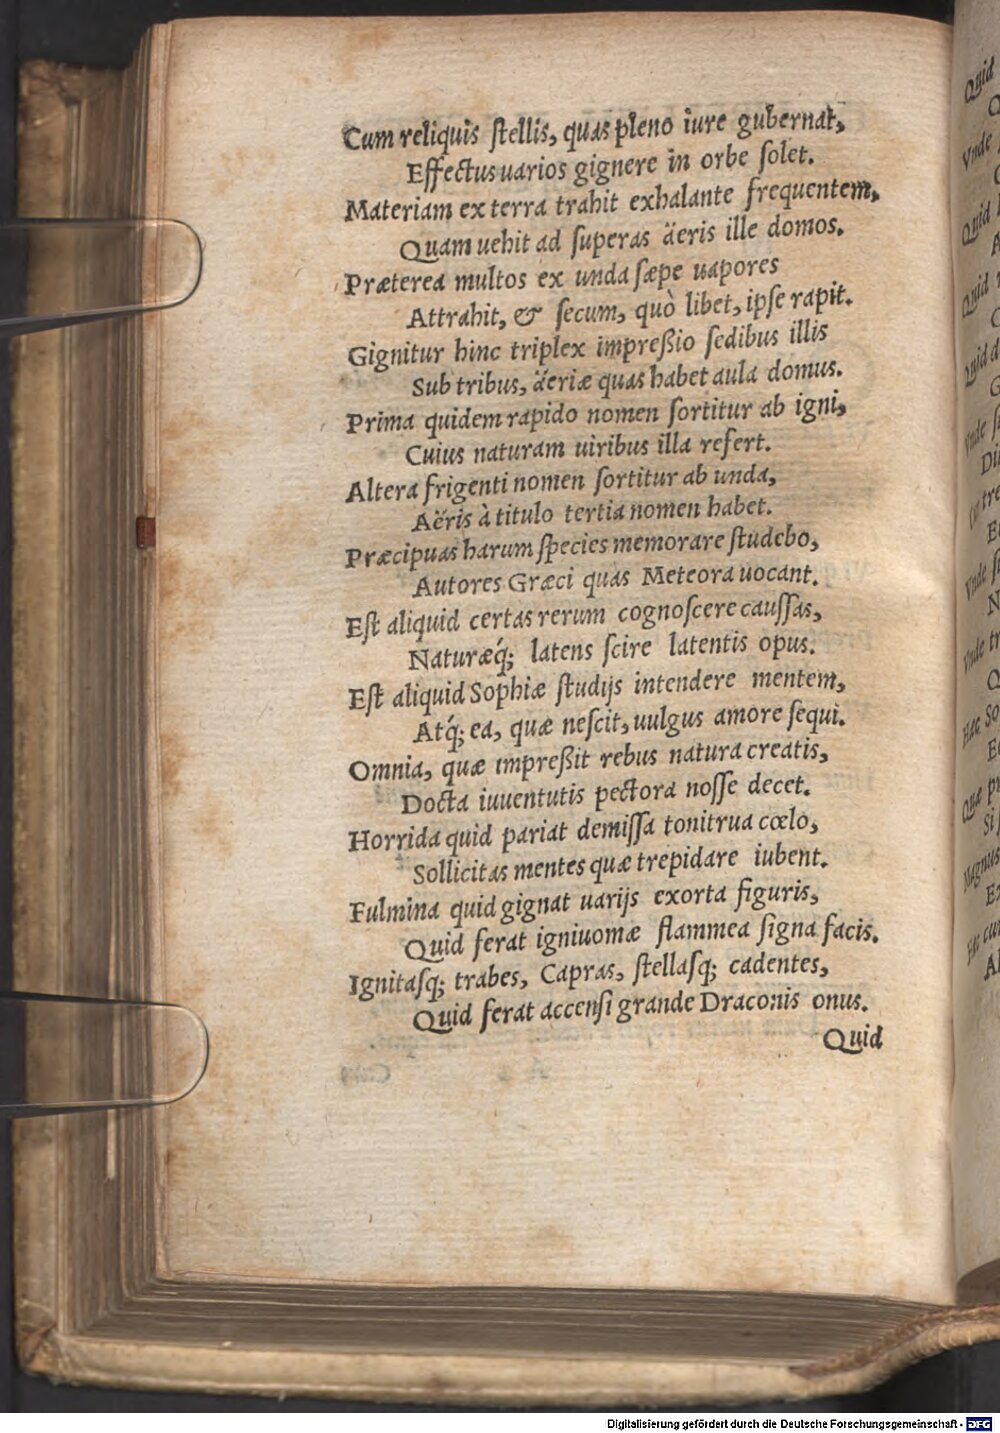 Cum reliquis ſtellis, quas pleno iure gubernat,
Effectus uarios gignere in orbe ſolet.
Materiam ex terra trahit exhalante frequentem,
Quam uehit ad ſuperas äeris ille domos.
Præterea multos ex unda ſæpe uapores
Attrahit, & ſecum, quò libet, ipſe rapit.
Gignitur hinc triplex impreßio ſedibus illis
Sub tribus, äeriæ quas habet aula domus.
Prima quidem rapido nomen ſortitur ab igni,
Cuius naturam uiribus illa refert.
Altera frigenti nomen ſortitur ab unda,
Aëris à titulo tertia nomen habet.
Præcipuas harum ſpecies memorare ſtudebo,
Autores Græci quas Meteora uocant.
Eſt aliquid certas rerum cognoſcere cauſſas,
Naturæq́; latens ſcire latentis opus.
Eſt aliquid Sophiæ ſtudijs intendere mentem,
Atq́; ea, quæ neſcit, uulgus amore ſequi.
Omnia, quæ impreßit rebus natura creatis,
Docta iuuentutis pectora noſſe decet.
Horrida quid pariat demiſſa tonitrua cœlo,
Sollicitas mentes quæ trepidare iubent.
Fulmina quid gignat uarijs exorta figuris,
Quid ferat igniuomæ flammea ſigna facis.
Ignitaſq; trabes, Capras, ſtellaſq; cadentes,
Quid ferat accenſi grande Draconis onus.
Quid
Quid
Vnde
Quid
Quid
Quid
Vnde
Vnde
Vnde
Hæc
Quæ
Magnus
Digitalisierung gefördert durch die Deutsche Forschungsgemeinschaft - DFG